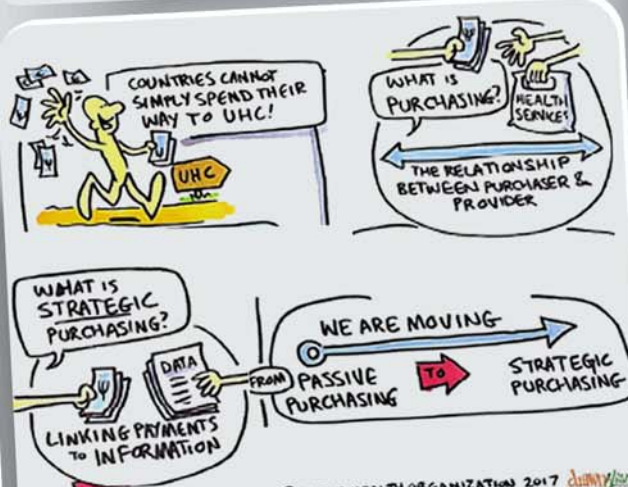 COUNTRIES CANNOT
SIMPLY SPEND THEIR
WAY TO UHC!
UHC
WHAT IS
PURCHASING?
HEALTH
SERVICES
THE RELATIONSHIP
BETWEEN PURCHASER &
PROVIDER
WHAT IS
STRATEGIC
PURCHASING?
DATA
LINKING PAYMENTS
TO INFORMATION
WE ARE MOVING
FROM PASSIVE
PURCHASING
TO
STRATEGIC
PURCHASING
ORGANIZATION 2017